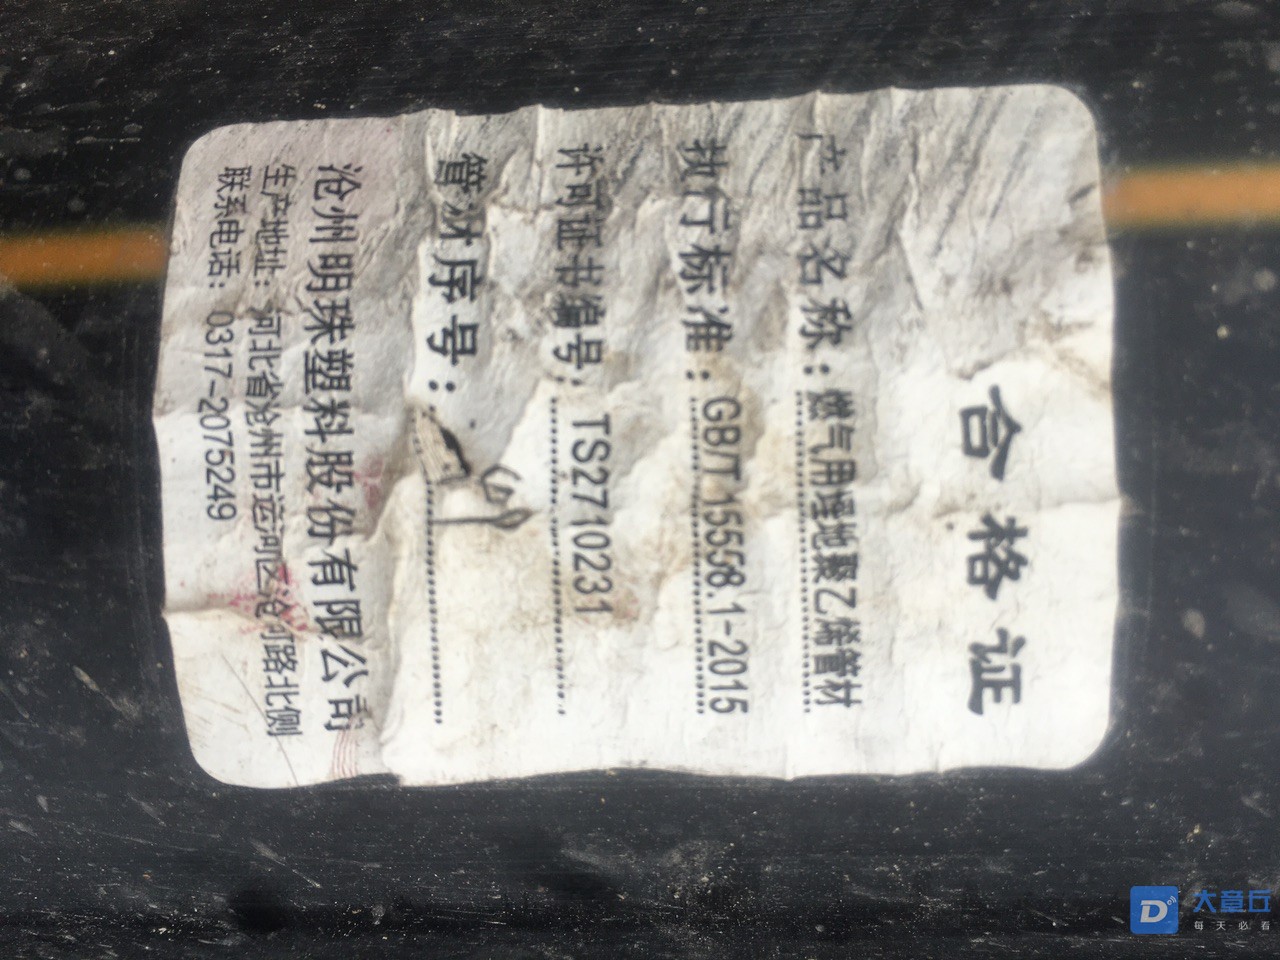 合格证
产品名称：燃气用埋地聚乙烯管材
执行标准：GB/T 15558.1-2015
许可证书编号：TS2710231
管材序号：
沧州明珠塑料股份有限公司
生产地址：河北省沧州市运河区沧河路北侧
联系电话：0317-2075249
D
大章丘
每天必看